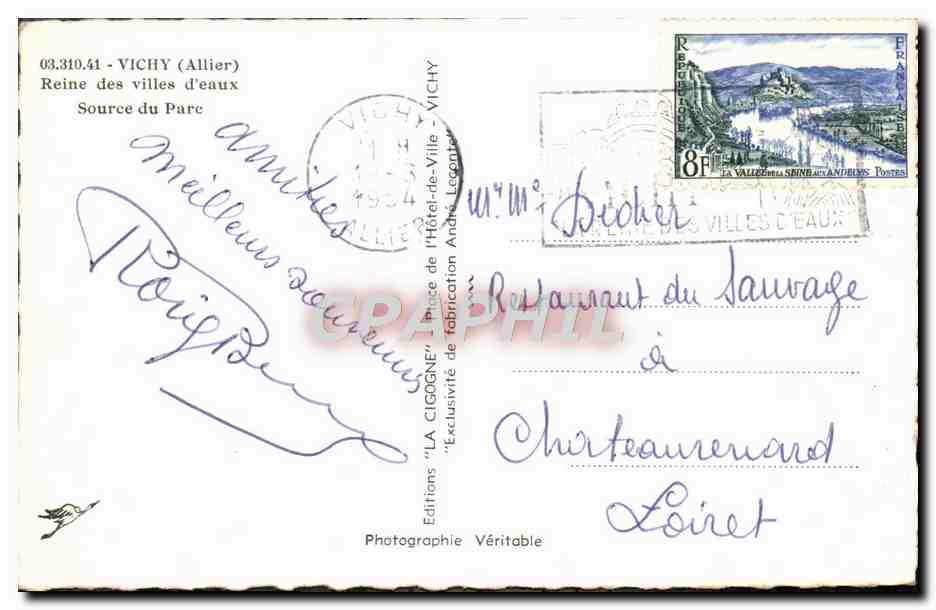 03.310.41 - VICHY (Allier)
Reine des villes d'eaux
Source du Parc
amitiés
meilleurs souvenirs
Editions "LA CIGOGNE" - Place de l'Hôtel-de-Ville - VICHY
"Exclusivité de fabrication André Leconte"
VICHY
1954
ALLIER
REPUBLIQUE FRANÇAISE
8F
LA VALLÉE DE LA SEINE AUX ANDELYS POSTES
DES VILLES D'EAUX
Mr Me Didier
Restaurant du Sauvage
à
Chateaurenard
Loiret
CPAPHIL
Photographie Véritable